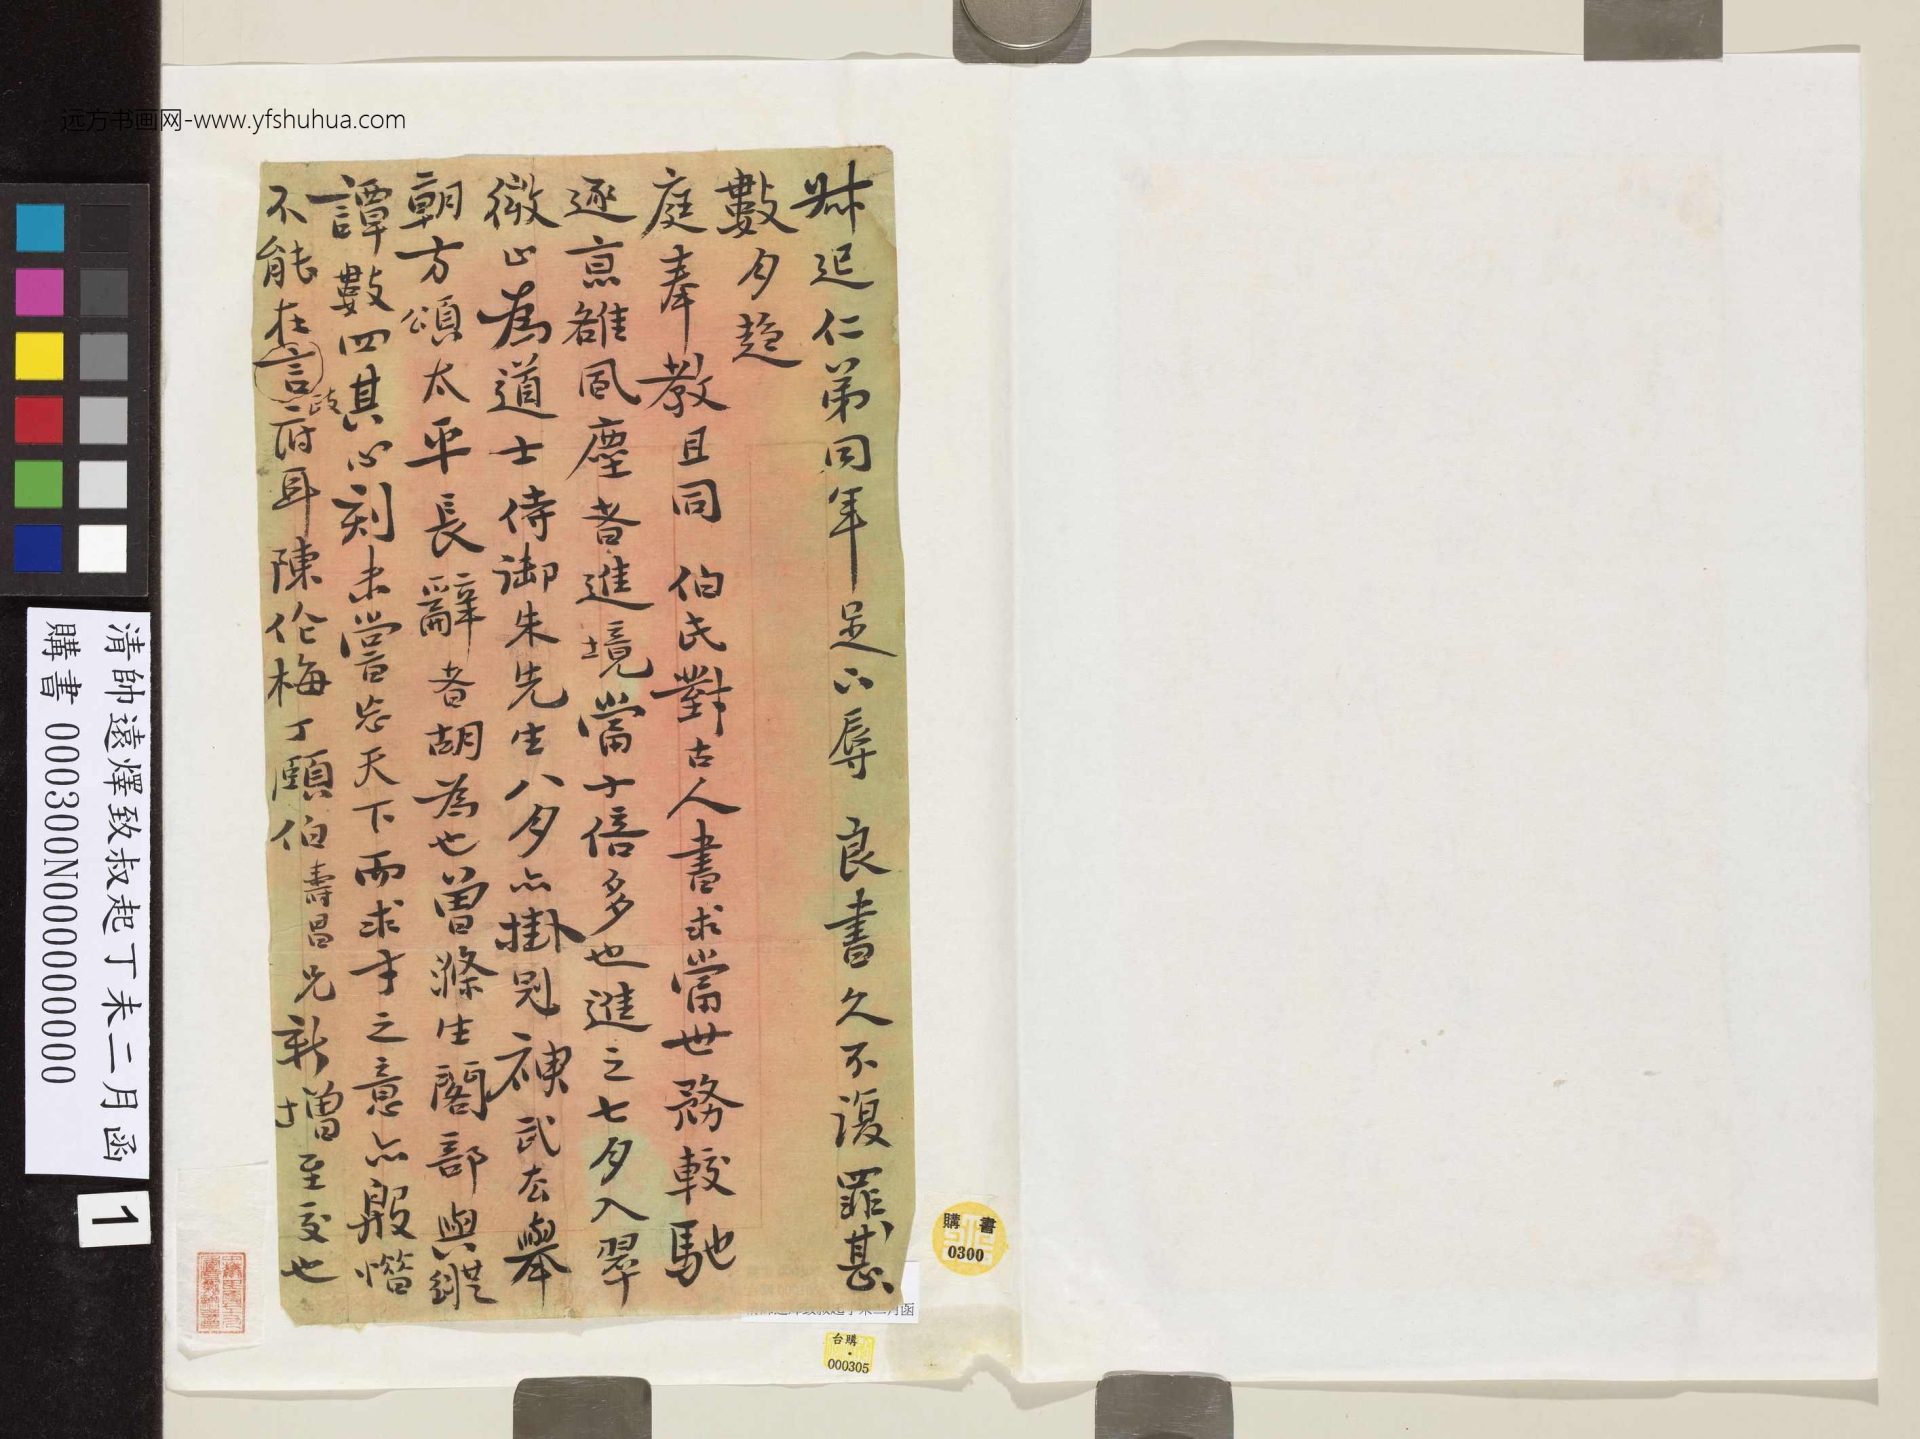 远方书画网-www.yfshuhua.com
尗起仁弟同年足下辱 良書久不復罪甚
數月趨
庭奉教且同 伯氏對古人書求當世務較馳
逐京雒風塵者進境當十倍多也進之七夕入翠
微山為道士侍御朱先生八月亦掛冠神武去舉
朝方頌太平長辭者胡為也曾滌生閣部與縱
譚數四其心刻未嘗忘天下而求才之意亦殷惜
不能在言政府耳陳伦梅丁頤伯壽昌兄新增至交也
清帥遠燡致叔起丁未二月函
購書 000300N000000000
1
購書
0300
台購
000305